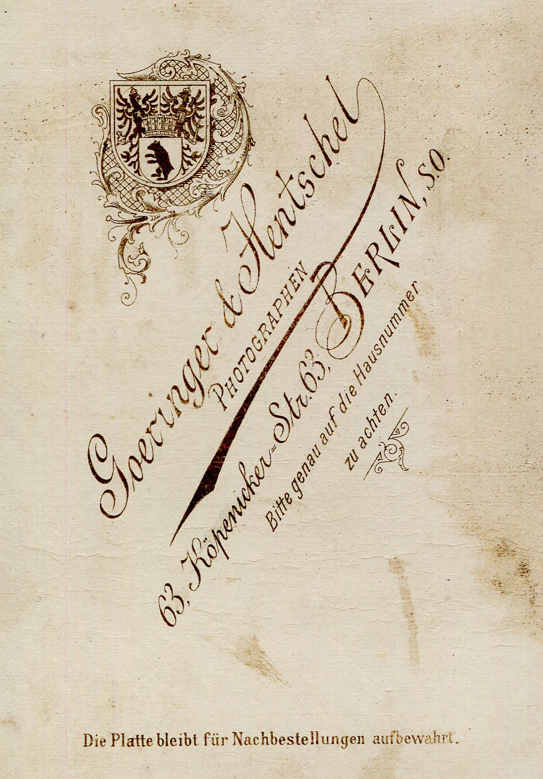 Goeringer & Hentschel
PHOTOGRAPHEN
63, Köpenicker-Str. 63, BERLIN, S.O.
Bitte genau auf die Hausnummer
zu achten.
Die Platte bleibt für Nachbestellungen aufbewahrt.